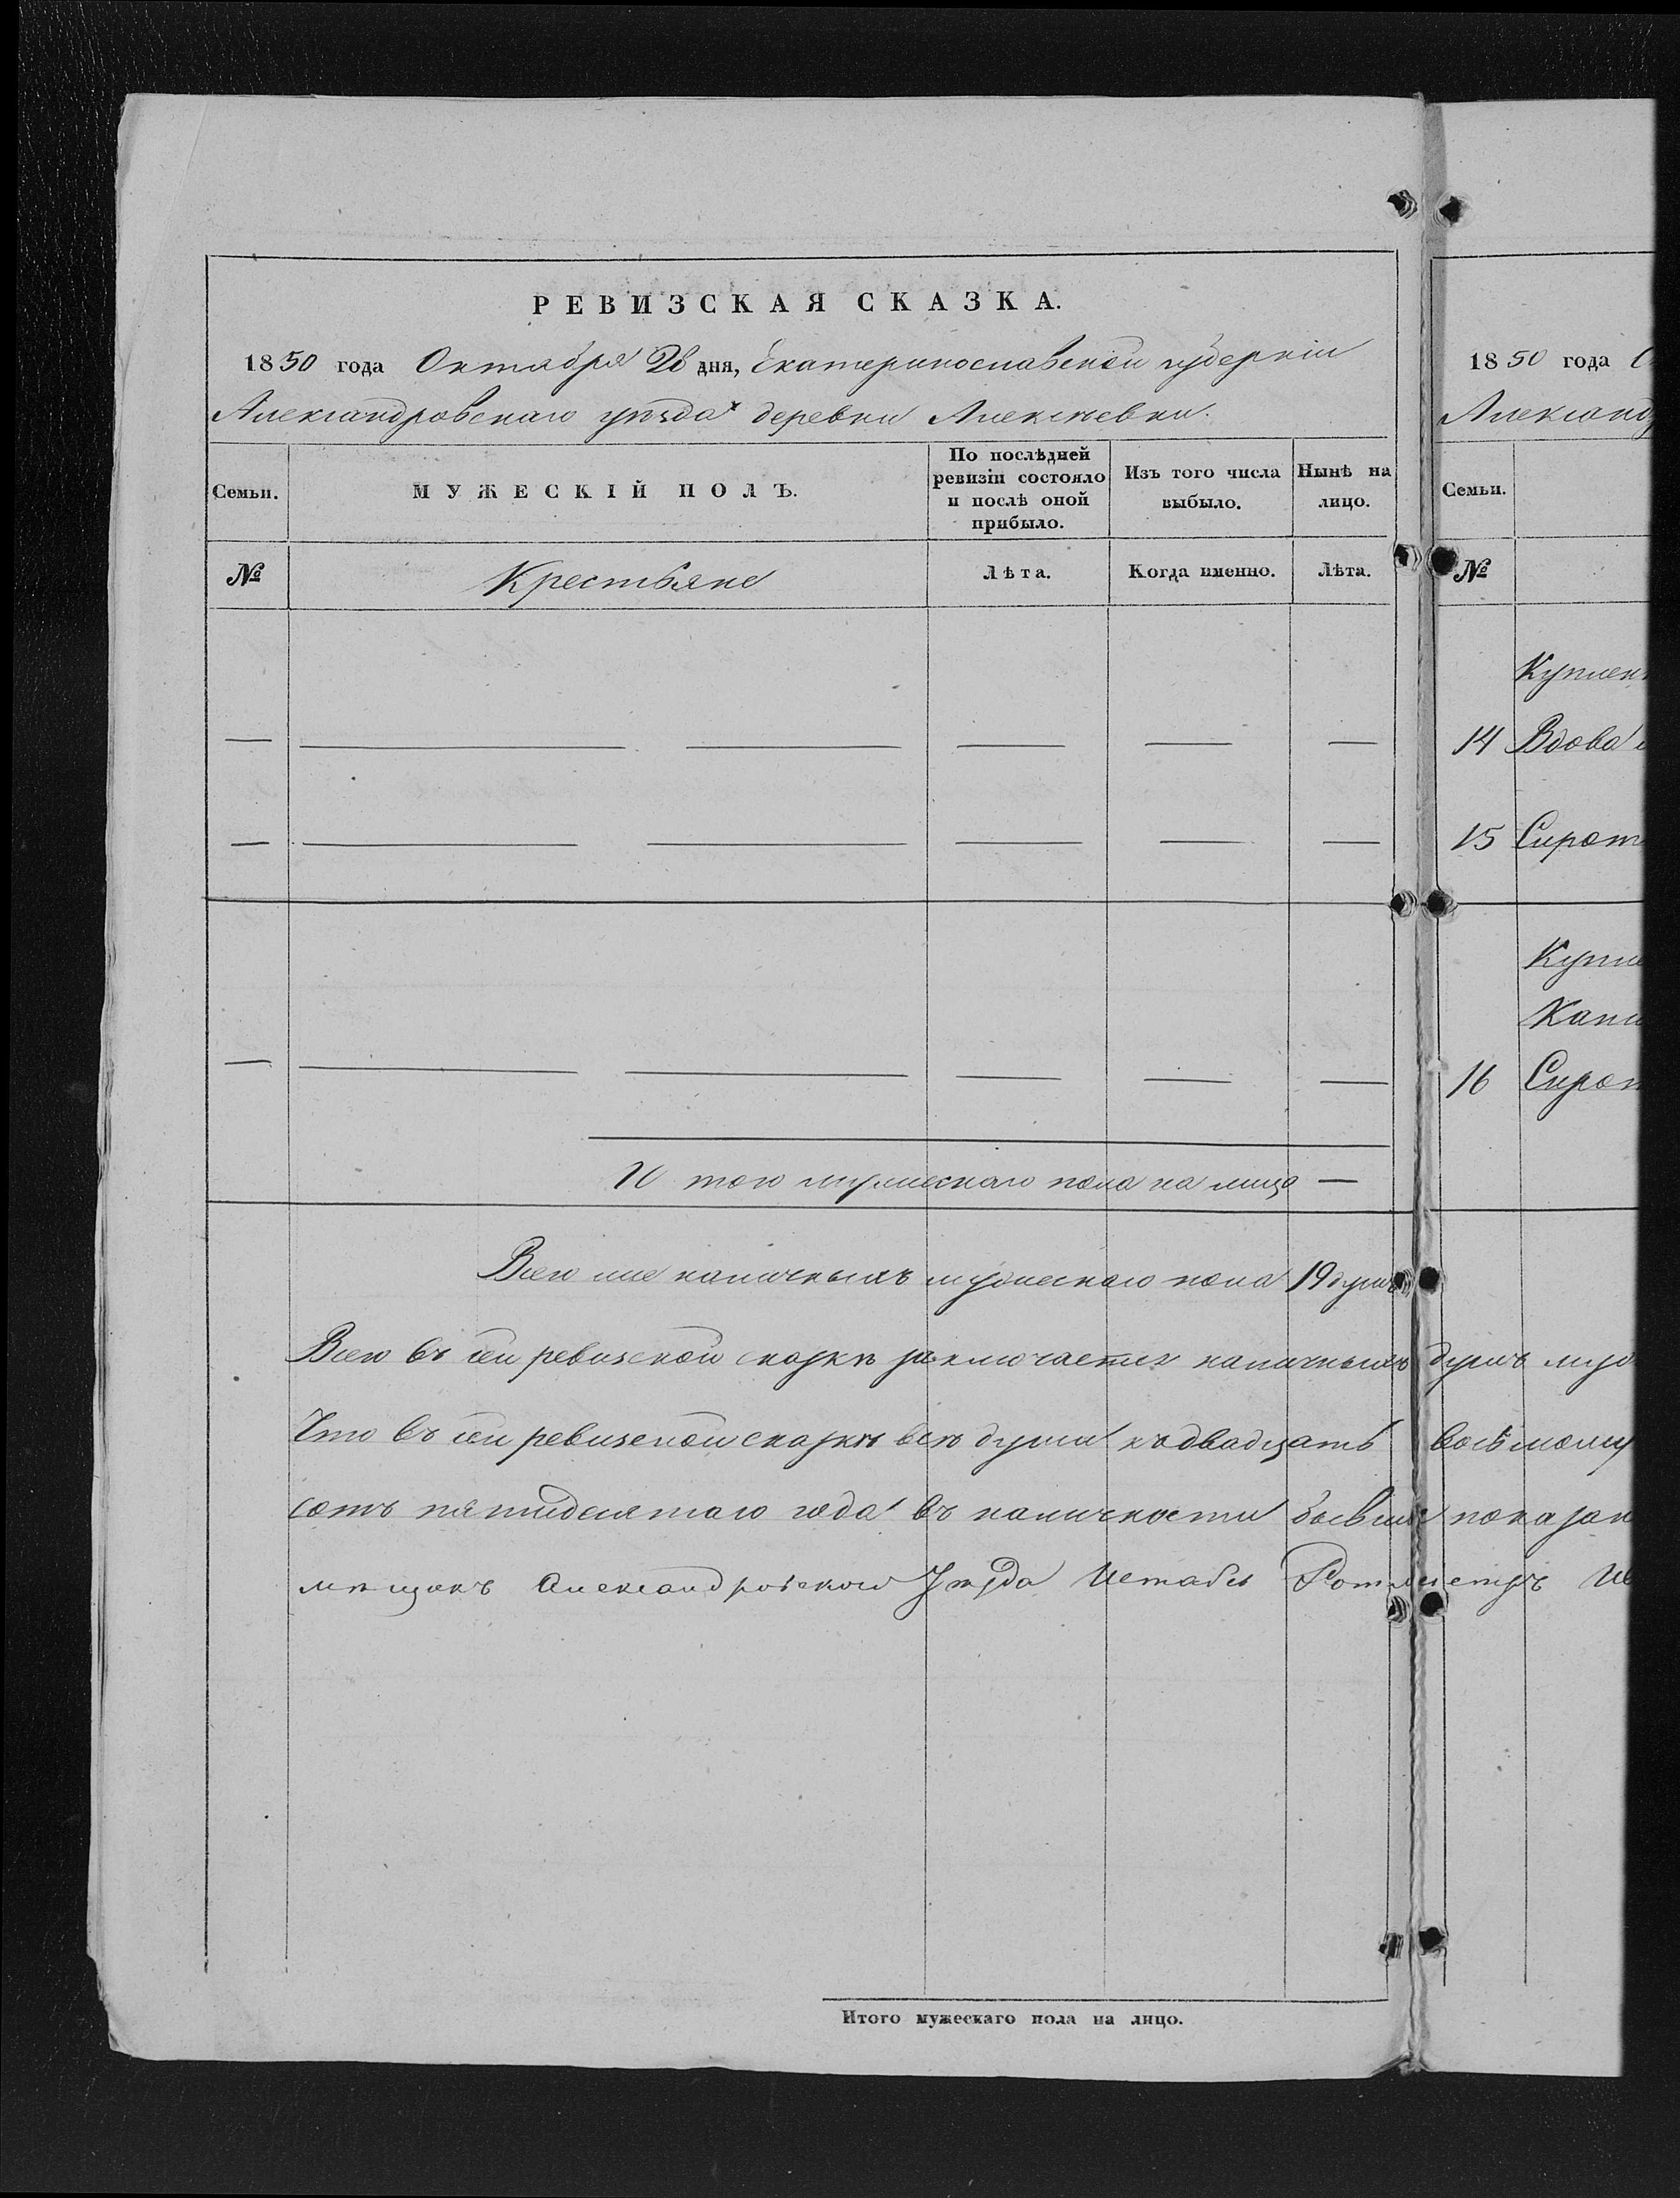 РЕВИЗСКАЯ СКАЗКА.
1850 года Октября 28 дня, Екатеринославской губернiи
Александровскаго уѣзда деревни Алексѣевки.
Семьи.
МУЖЕСКIЙ ПОЛЪ.
По послѣдней ревизiи состояло и послѣ оной прибыло.
Изъ того числа выбыло.
Нынѣ на лицо.
№
Крестьяне
Лѣта.
Когда именно.
Лѣта.
И того мужескаго пола на лицо —
Всего же наличныхъ мужескаго пола 19 душъ
Всего въ сей ревизской сказкѣ заключается наличныхъ душъ муж
Что въ сей ревизской сказкѣ всѣ души къ двадцать восьмому
сотъ пятидесятаго года въ наличности бывшiе показан
мѣщикъ Александровскаго Уѣзда Штабсъ Ротмистръ
Итого мужескаго пола на лицо.
1850 года
Александ
Семьи.
№
Куплен
14 Вдова
15 Сирот
Купле
16 Сирот